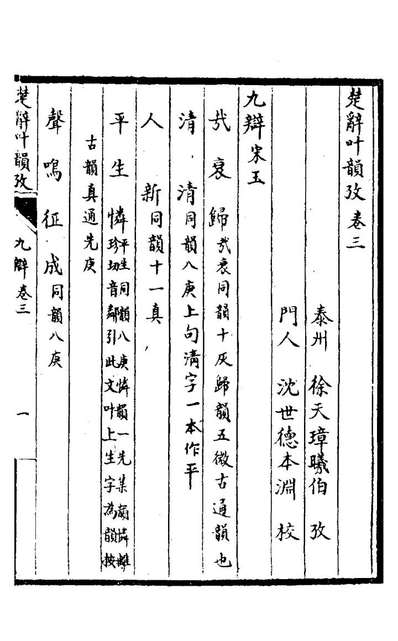 楚辭叶韻攷卷三
泰州 徐天璋曦伯 攷
門人 沈世德本淵 校
九辯宋玉
哀 歸 㢤哀同韻十灰歸韻五微古通韻也
清 清同韻八庚上句清字一本作平
人 新同韻十一真
平 生 憐平生同韻八庚憐韻一先集韻憐離
珍切音鄰引此文叶上生字為韻按
古韻真通先庚
聲 鳴 征 成同韻八庚
楚辭叶韻攷 九辯卷三 一